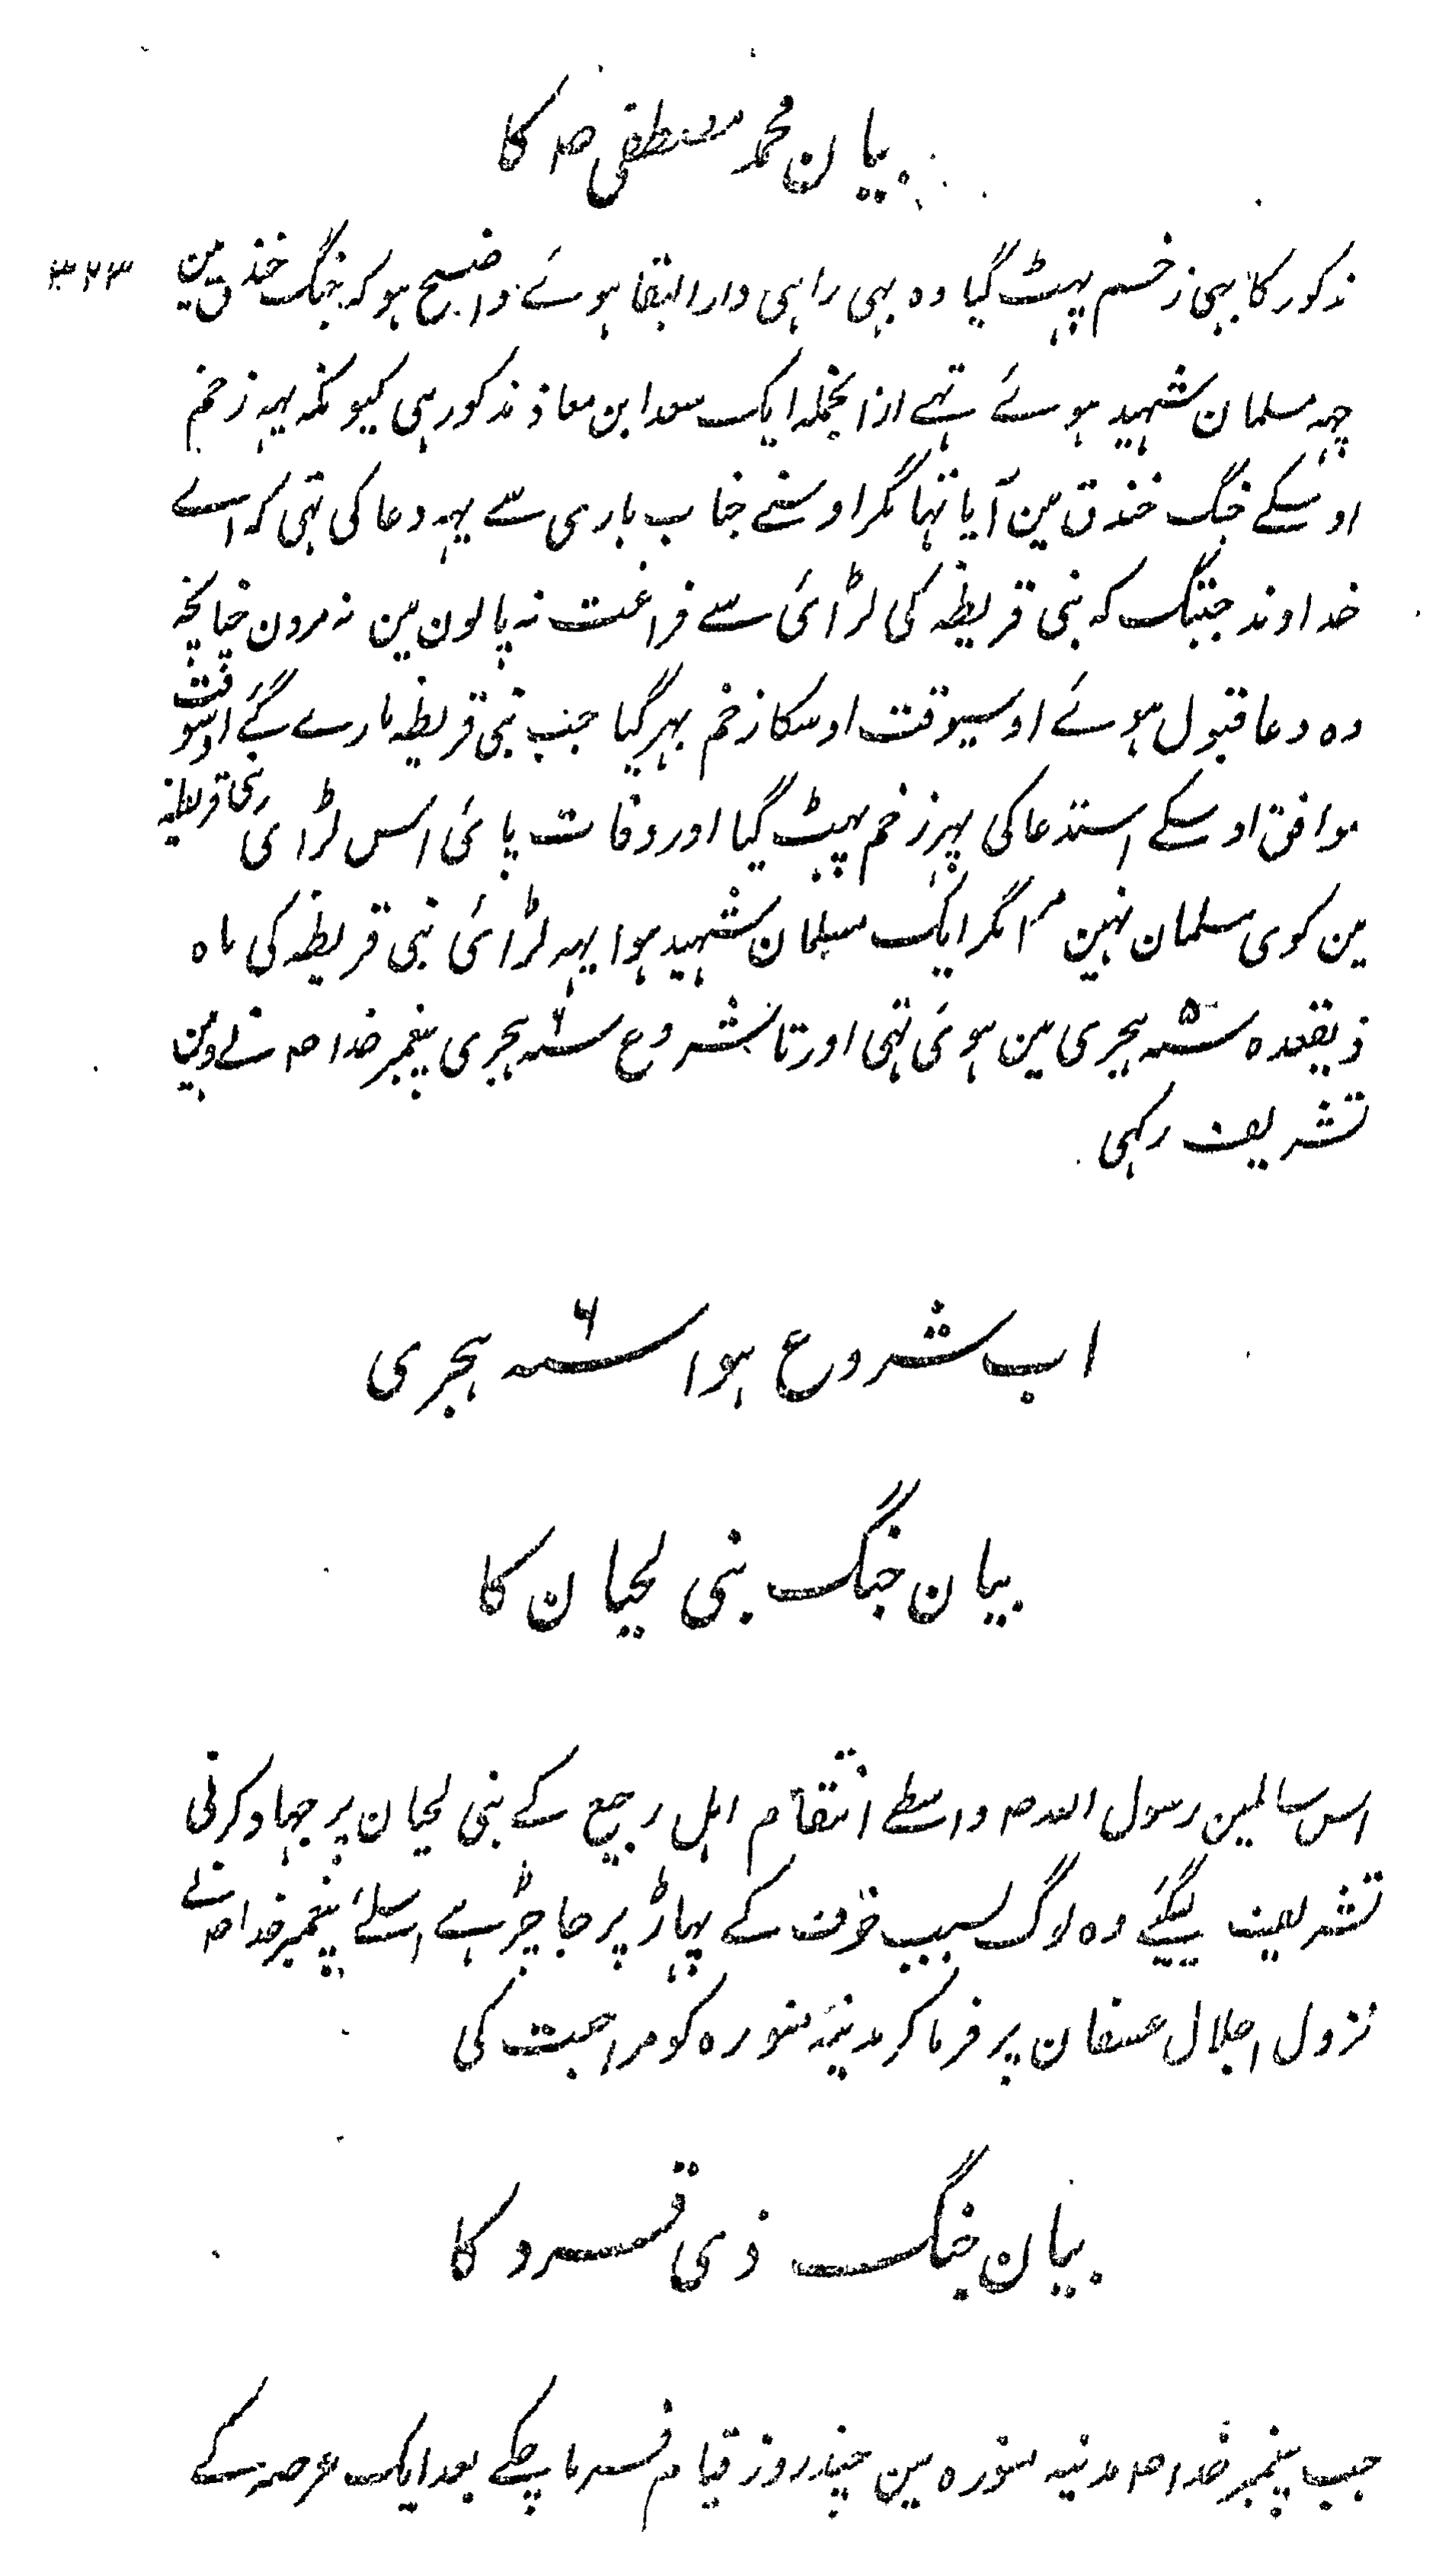 بیان محمد مصطفی صہ کا
۳۲۳
مذکور کا بہی زخم پہٹ گیا وہ بہی راہی دار البقا ہوئے واضح ہو کہ جنگ خندق مین
چہہ مسلمان شہید ہوئے تہے ازانجملہ ایک سعد ابن معاذ مذکور ہی کیونکہ یہہ زخم
اوسکے جنگ خندق مین آیا تہا مگر اوسنے جناب باری سے یہہ دعا کی تہی کہ اے
خداوند جبتک کہ بنی قریظہ کی لڑائی سے فراغت نہ پالون مین نہ مرون چنانچہ
وہ دعا قبول ہوئے اوسیوقت اوسکا زخم بہر گیا جب بنی قریظہ مارے گئے اوسوقت
موافق اوسکے استدعا کی پہر زخم پہٹ گیا اور وفات پائی اس لڑائی بنی قریظہ
مین کوی مسلمان نہین مرا مگر ایک مسلمان شہید ہوا یہہ لڑائی بنی قریظہ کی ماہ
ذیقعدہ سنہ ۵ ہجری مین ہوئی تہی اور تا شروع سنہ ۶ ہجری پیغمبر خدا صہ نے وہین
تشریف رکہی
اب شروع ہوا سنہ ۶ ہجری
بیان جنگ بنی لحیان کا
اس سالمین رسول اللہ صہ واسطے انتقام اہل رجیع کے بنی لحیان پر جہاد کرنی
تشریف لیگئے وہ لوگ بسبب خوف کے پہاڑ پر جا چڑہے اسلئے پیغمبر خدا صہ نے
نزول اجلال عسفان پر فرما کر مدینہ منورہ کو مراجعت کی
بیان جنگ ذی قرد کا
جب پیغمبر خدا صہ مدینہ منورہ مین چند روز قیام فرما چکے بعد ایک عرصہ کے